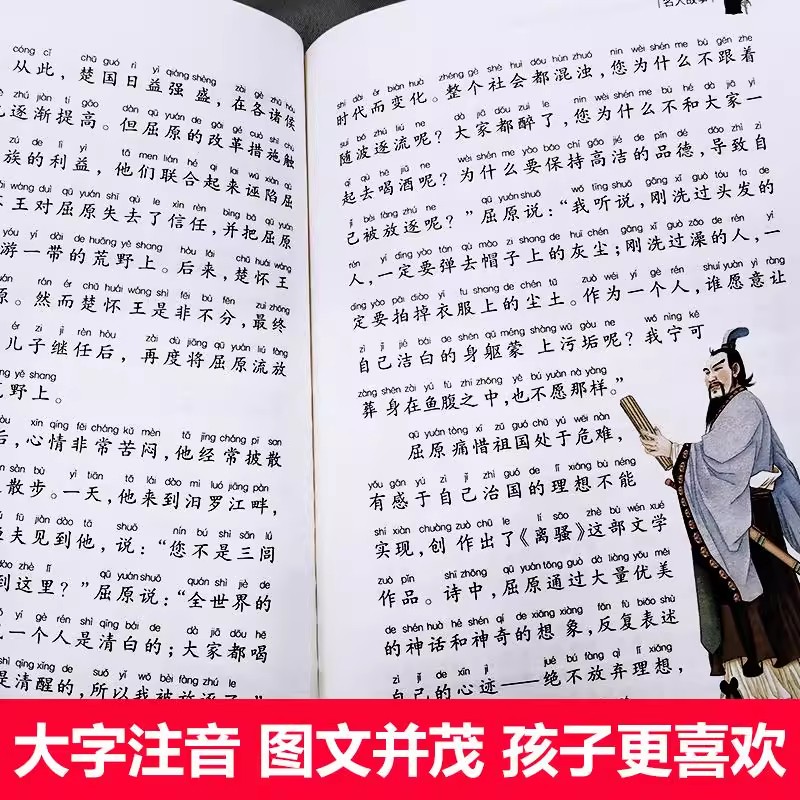 cóng cǐ chǔ guó rì yì qiáng shèng zài gè zhū hóu
从此，楚国日益强盛，在各诸侯
zhú jiàn tí gāo dàn qū yuán de gǎi gé cuò shī chù
逐渐提高。但屈原的改革措施触
zú de lì yì tā men lián hé qǐ lái wū xiàn qū
族的利益，他们联合起来诬陷屈
wáng duì qū yuán shī qù le xìn rèn bìng bǎ qū yuán
怀王对屈原失去了信任，并把屈原
yóu yí dài de huāng yě shang hòu lái chǔ huái wáng
游一带的荒野上。后来，楚怀王
rán ér chǔ huái wáng shì fēi bù fēn zuì zhōng
原。然而楚怀王是非不分，最终
ér zi jì rèn hòu zài dù jiāng qū yuán liú fàng
儿子继任后，再度将屈原流放
yě shang
荒野上。
xīn qíng fēi cháng kǔ mèn tā jīng cháng pī sàn
后，心情非常苦闷，他经常披散
sàn bù yì tiān tā lái dào mì luó jiāng pàn
散步。一天，他来到汨罗江畔，
fū jiàn dào tā shuō nín bú shì sān lǘ
夫见到他，说：“您不是三闾
zhè lǐ qū yuán shuō quán shì jiè de
到这里？”屈原说：“全世界的
yí gè rén shì qīng bái de dà jiā dōu hē
一个人是清白的；大家都喝
shì qīng xǐng de suǒ yǐ wǒ bèi fàng zhú le
是清醒的，所以我被放逐了。”
名人故事
shí dài ér biàn huà zhěng gè shè huì dōu hùn zhuó nín wèi shén me bù gēn zhe
时代而变化。整个社会都混浊，您为什么不跟着
suí bō zhú liú ne dà jiā dōu zuì le nín wèi shén me bù hé dà jiā yì
随波逐流呢？大家都醉了，您为什么不和大家一
qǐ qù hē jiǔ ne wèi shén me yào bǎo chí gāo jié de pǐn dé dǎo zhì zì
起去喝酒呢？为什么要保持高洁的品德，导致自
jǐ bèi fàng zhú ne qū yuán shuō wǒ tīng shuō gāng xǐ guò tóu fa de
己被放逐呢？”屈原说：“我听说，刚洗过头发的
rén yí dìng yào tán qù mào zi shang de huī chén gāng xǐ guò zǎo de rén yí
人，一定要弹去帽子上的灰尘；刚洗过澡的人，一
dìng yào pāi diào yī fu shang de chén tǔ zuò wéi yí gè rén shuí yuàn yì ràng
定要拍掉衣服上的尘土。作为一个人，谁愿意让
zì jǐ jié bái de shēn qū méng shàng wū gòu ne wǒ nìng kě
自己洁白的身躯蒙上污垢呢？我宁可
zàng shēn zài yú fù zhī zhōng yě bú yuàn nà yàng
葬身在鱼腹之中，也不愿那样。”
qū yuán tòng xī zǔ guó chǔ yú wēi nàn
屈原痛惜祖国处于危难，
yǒu gǎn yú zì jǐ zhì guó de lǐ xiǎng bù néng
有感于自己治国的理想不能
shí xiàn chuàng zuò chū le lí sāo zhè bù wén xué
实现，创作出了《离骚》这部文学
zuò pǐn shī zhōng qū yuán tōng guò dà liàng yōu měi
作品。诗中，屈原通过大量优美
de shén huà hé shén qí de xiǎng xiàng fǎn fù biǎo shù
的神话和神奇的想象，反复表述
zì jǐ de xīn jì jué bú fàng qì lǐ xiǎng
自己的心迹——绝不放弃理想，
大字注音 图文并茂 孩子更喜欢